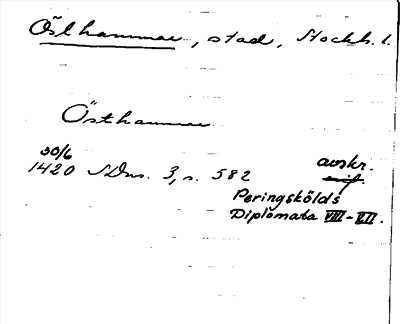 Östhammar, stad, Stockh. l.
Östhammar
30/6
1420 SDns. 3, s. 582 avskr.
Peringskölds
Diplomata VIII-